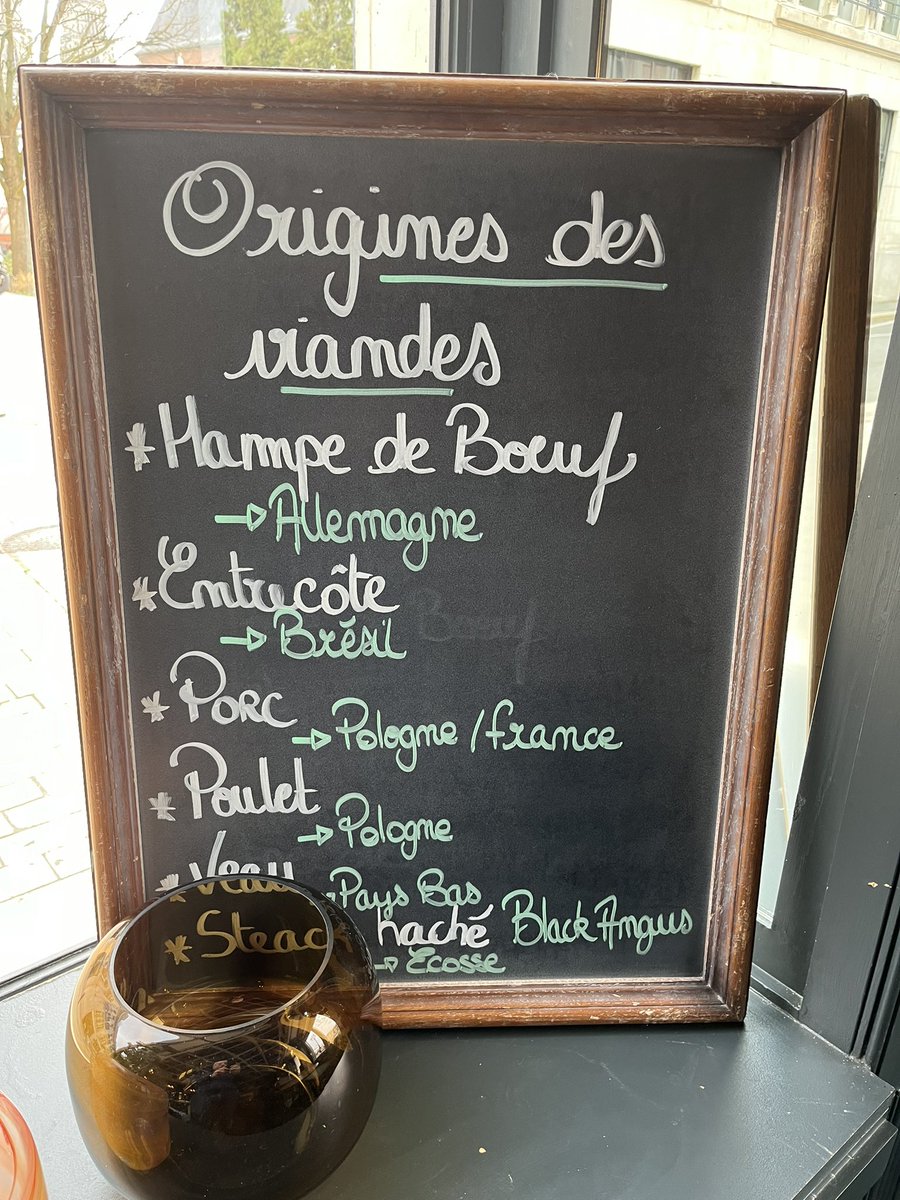 Origines des
viandes
* Hampe de Boeuf
→ Allemagne
* Entrecôte
→ Brésil
* Porc
→ Pologne / france
* Poulet
→ Pologne
* Veau
→ Pays Bas
* Steack haché Black Angus
→ Ecosse